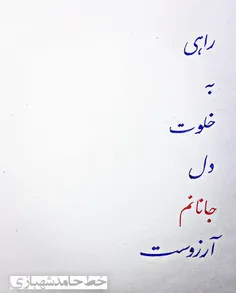 راهی
به
خلوت
دل
جانانم
آرزوست
خط حامد شهبازی